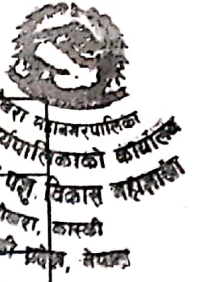 पोखरा महानगरपालिका
कार्यपालिकाको कार्यालय
पशु विकास महाशाखा
पोखरा, कास्की
प्रदेश, नेपाल